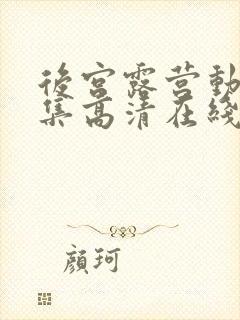 後宮露营動
集高清在綫
顔珂